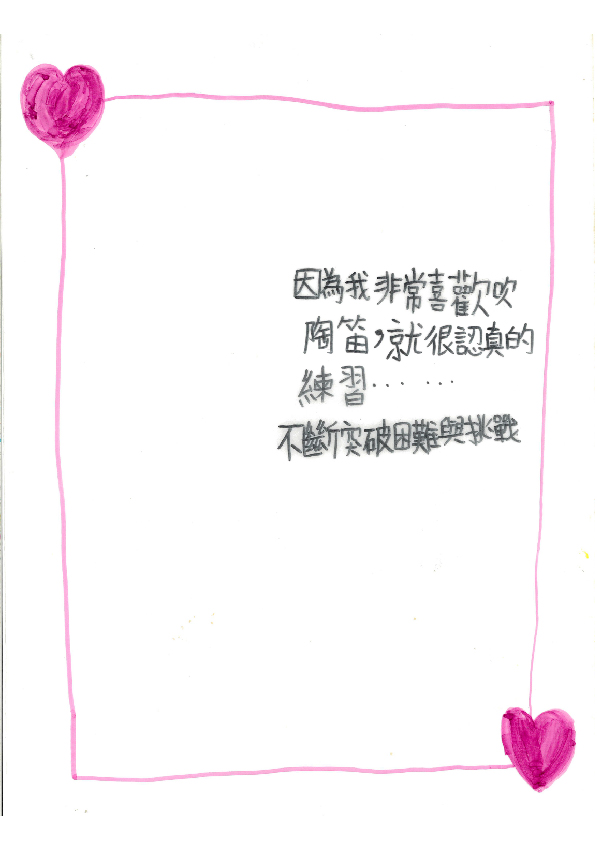 因為我非常喜歡吹
陶笛，就很認真的
練習……
不斷突破困難與挑戰